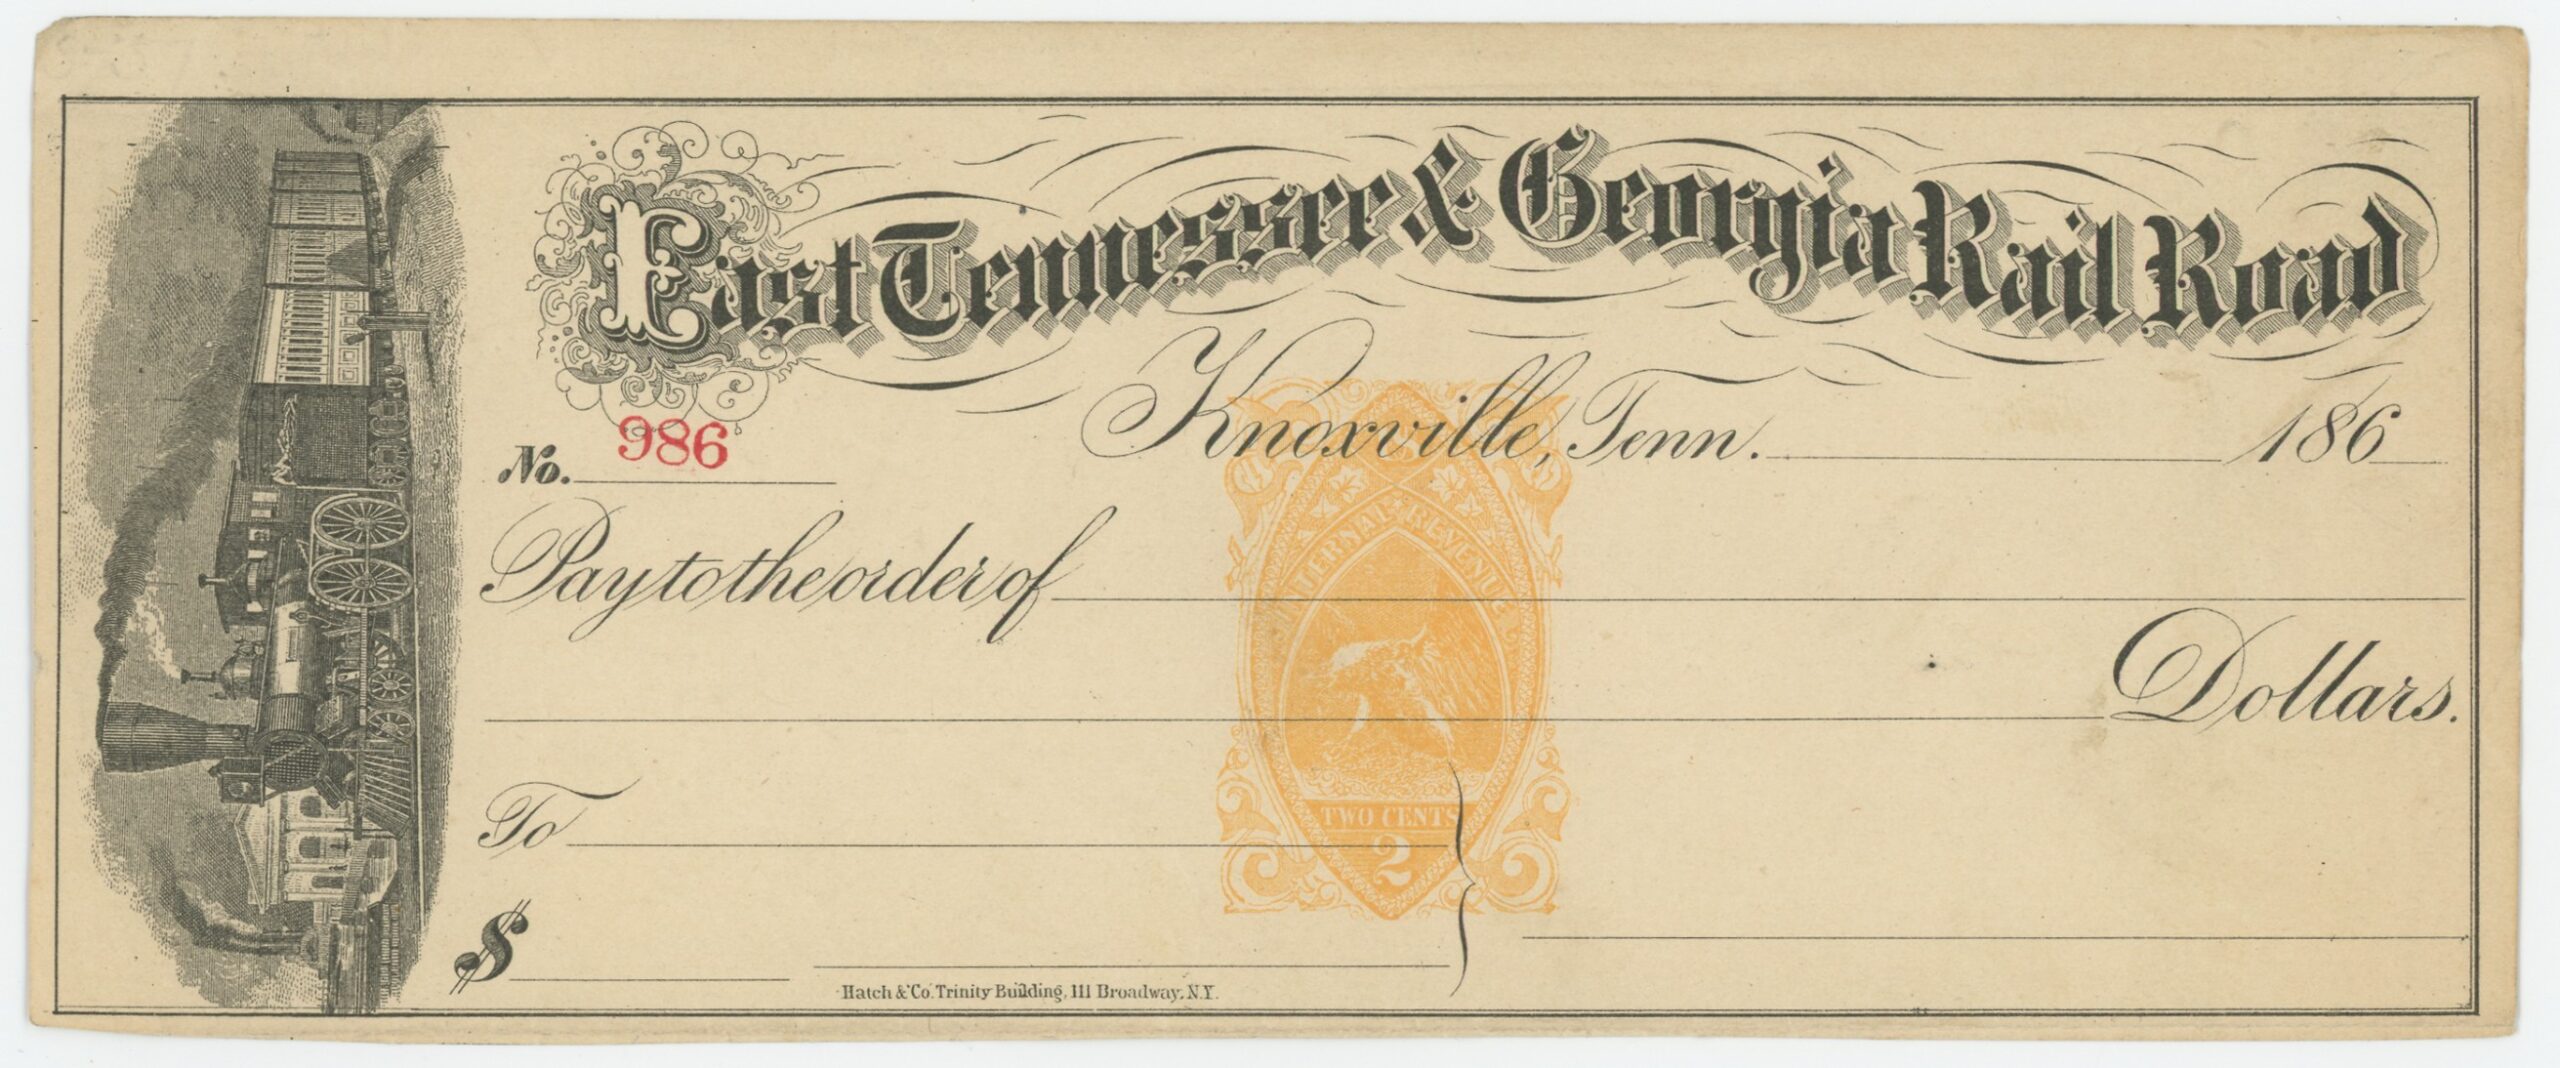 East Tennessee & Georgia Rail Road
Knoxville, Tenn. 186
No. 986
INTERNAL REVENUE
Pay to the order of
Dollars.
TWO CENTS
2
To
$
Hatch & Co. Trinity Building, 111 Broadway, N.Y.